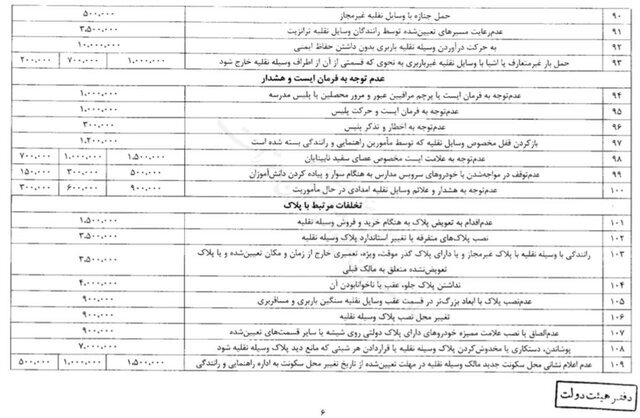 ۹۰ حمل جنازه با وسایل نقلیه غیرمجاز ۵۰۰,۰۰۰
۹۱ عدم‌رعایت مسیرهای تعیین‌شده توسط رانندگان وسایل نقلیه ترانزیت ۳,۵۰۰,۰۰۰
۹۲ به حرکت درآوردن وسیله نقلیه باربری بدون داشتن حفاظ ایمنی ۱۰,۰۰۰,۰۰۰
۹۳ حمل بار غیرمتعارف یا اشیا با وسایل نقلیه غیرباربری به نحوی که قسمتی از آن از اطراف وسیله نقلیه خارج شود ۱,۰۰۰,۰۰۰ ۷۰۰,۰۰۰ ۲۰۰,۰۰۰
عدم توجه به فرمان ایست و هشدار
۹۴ عدم‌توجه به فرمان ایست یا پرچم مراقبین عبور و مرور محصلین یا پلیس مدرسه ۱,۰۰۰,۰۰۰
۹۵ عدم‌توجه به فرمان ایست و حرکت پلیس ۱,۰۰۰,۰۰۰
۹۶ عدم‌توجه به اخطار و تذکر پلیس ۳۰۰,۰۰۰
۹۷ بازکردن قفل مخصوص وسایل نقلیه که توسط مأمورین راهنمایی و رانندگی بسته شده است ۱,۲۰۰,۰۰۰
۹۸ عدم‌توجه به علامت ایست مخصوص عصای سفید نابینایان ۱,۵۰۰,۰۰۰ ۱,۰۰۰,۰۰۰ ۷۰۰,۰۰۰
۹۹ عدم‌توقف در مواجه‌شدن با خودروهای سرویس مدارس به هنگام سوار و پیاده کردن دانش‌آموزان ۵۰۰,۰۰۰ ۳۰۰,۰۰۰ ۱۵۰,۰۰۰
۱۰۰ عدم‌توجه به هشدار و علائم وسایل نقلیه امدادی در حال مأموریت ۹۰۰,۰۰۰ ۶۰۰,۰۰۰ ۳۰۰,۰۰۰
تخلفات مرتبط با پلاک
۱۰۱ عدم‌اقدام به تعویض پلاک به هنگام خرید و فروش وسیله نقلیه ۱,۵۰۰,۰۰۰
۱۰۲ نصب پلاک‌های متفرقه یا تغییر استاندارد پلاک وسیله نقلیه ۳,۵۰۰,۰۰۰
۱۰۳ رانندگی با وسیله نقلیه با پلاک غیرمجاز و یا دارای پلاک گذر موقت، ویژه، تعمیری خارج از زمان و مکان تعیین‌شده و یا پلاک
تعویض‌نشده متعلق به مالک قبلی ۳,۵۰۰,۰۰۰
۱۰۴ نداشتن پلاک جلو، عقب یا ناخوانابودن آن ۴,۰۰۰,۰۰۰
۱۰۵ عدم‌نصب پلاک با ابعاد بزرگ‌تر در قسمت عقب وسایل نقلیه سنگین باربری و مسافربری ۹۰۰,۰۰۰
۱۰۶ تغییر محل نصب پلاک وسیله نقلیه ۹۰۰,۰۰۰
۱۰۷ عدم‌الصاق یا نصب علامت ممیزه خودروهای دارای پلاک دولتی روی شیشه یا سایر قسمت‌های تعیین‌شده ۹۰۰,۰۰۰
۱۰۸ پوشاندن، دستکاری یا مخدوش‌کردن پلاک وسیله نقلیه یا قراردادن هر شیئی که مانع دید پلاک وسیله نقلیه شود ۷,۰۰۰,۰۰۰
۱۰۹ عدم اعلام نشانی محل سکونت جدید مالک وسیله نقلیه در مهلت تعیین‌شده از تاریخ تغییر محل سکونت به اداره راهنمایی و رانندگی ۱,۵۰۰,۰۰۰ ۱,۰۰۰,۰۰۰ ۵۰۰,۰۰۰
دفتر هیئت دولت
۶